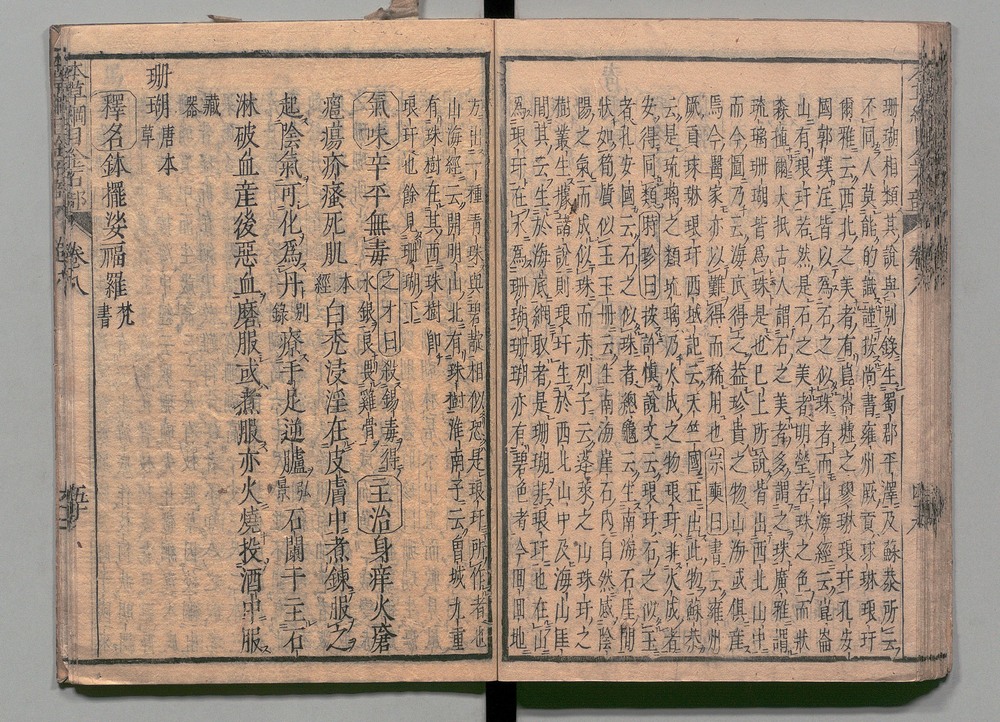 珊瑚相類其說與別錄生蜀郡平澤及蘇恭所云
不同人莫能的識謹按尚書雍州厥貢球琳琅玕
爾雅云西北之美者有崑崙墟之璆琳琅玕孔安
國郭璞注皆以為石之似珠者而山海經云崑崙
山有琅玕若然是石之美者明瑩若珠之色而狀
森植爾大抵古人謂石之美者多謂之珠廣雅謂
琉璃珊瑚皆為珠是也已上所說皆出西北山中
而今圖乃云海底得之益珍貴之物山海或俱產
焉今醫家亦以難得而稀用也宗奭曰書云雍州
厥貢球琳琅玕西域記云天竺國正出此物蘇恭
云是琉璃之類琉璃乃火成之物琅玕非火成者
安得同類時珍曰按許慎說文云琅玕石之似玉
者孔安國云石之似珠者總龜云生南海石崖間
狀如筍質似玉玉冊云生南海崖石內自然感陰
陽之氣而成似珠而赤列子云蓬萊之山珠玕之
樹叢生據諸說則琅玕生於西北山中及海山崖
間其云生於海底網取者是珊瑚非琅玕也在山
為琅玕在水為珊瑚珊瑚亦有碧色者今回回地
方出一種青珠與碧靛相似恐是琅玕所作者也
山海經云開明山北有珠樹淮南子云曾城九重
有珠樹在其西珠樹即
琅玕也餘見珊瑚下
氣味辛平無毒之才曰殺錫毒得水銀良畏雞骨主治身痒火瘡
癰瘍疥瘙死肌本經白禿浸淫在皮膚中煮鍊服之
起陰氣可化為丹別錄療手足逆臚弘景石闌干主石
淋破血產後惡血磨服或煮服亦火燒投酒中服
藏器
珊瑚唐本草
釋名鉢擺娑福羅梵書
本草綱目金石部 卷八